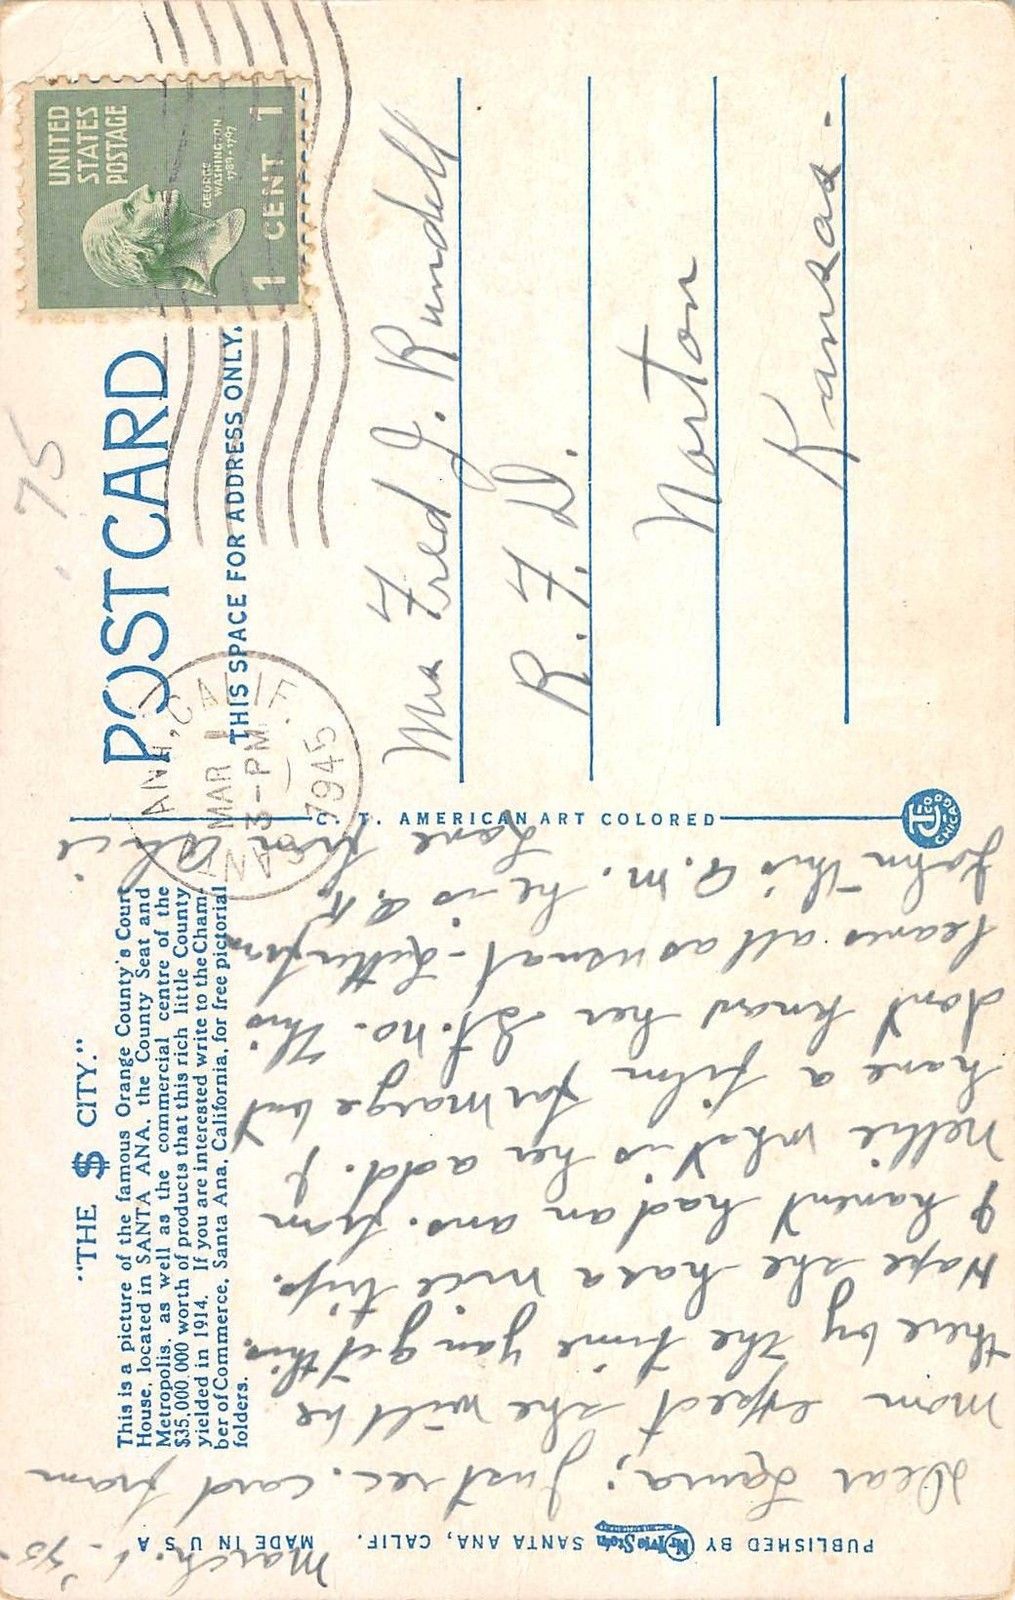 .75
UNITED
STATES
POSTAGE
GEORGE
WASHINGTON
1789-1797
1 CENT 1
POSTCARD
THIS SPACE FOR ADDRESS ONLY.
SANTA ANA, CALIF.
MAR 1
3-PM
1945
Mrs Fred J. Rundell
R.F.D.
Norton
Kansas.
C. T. AMERICAN ART COLORED
CHICAGO
"THE $ CITY."
This is a picture of the famous Orange County's Court
House, located in SANTA ANA, the County Seat and
Metropolis, as well as the commercial centre of the
$35,000,000 worth of products that this rich little County
yielded in 1914. If you are interested write to the Cham-
ber of Commerce, Santa Ana, California, for free pictorial
folders.
PUBLISHED BY SANTA ANA, CALIF. MADE IN U S A
March. 1 - 45-
Dear Laura; Just rec. card from
mom expect she will be
there by the time you get this.
Hope she has a nice trip.
I havent had an ans. from
Nellie what is her add. I
have a film for Marge but
dont know her St. no. This
leaves all as usual - Letter from
John this a.m. he is O.K.
Love from Alice